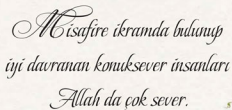 Misafire ikramda bulunup
iyi davranan konuksever insanları
Allah da çok sever.